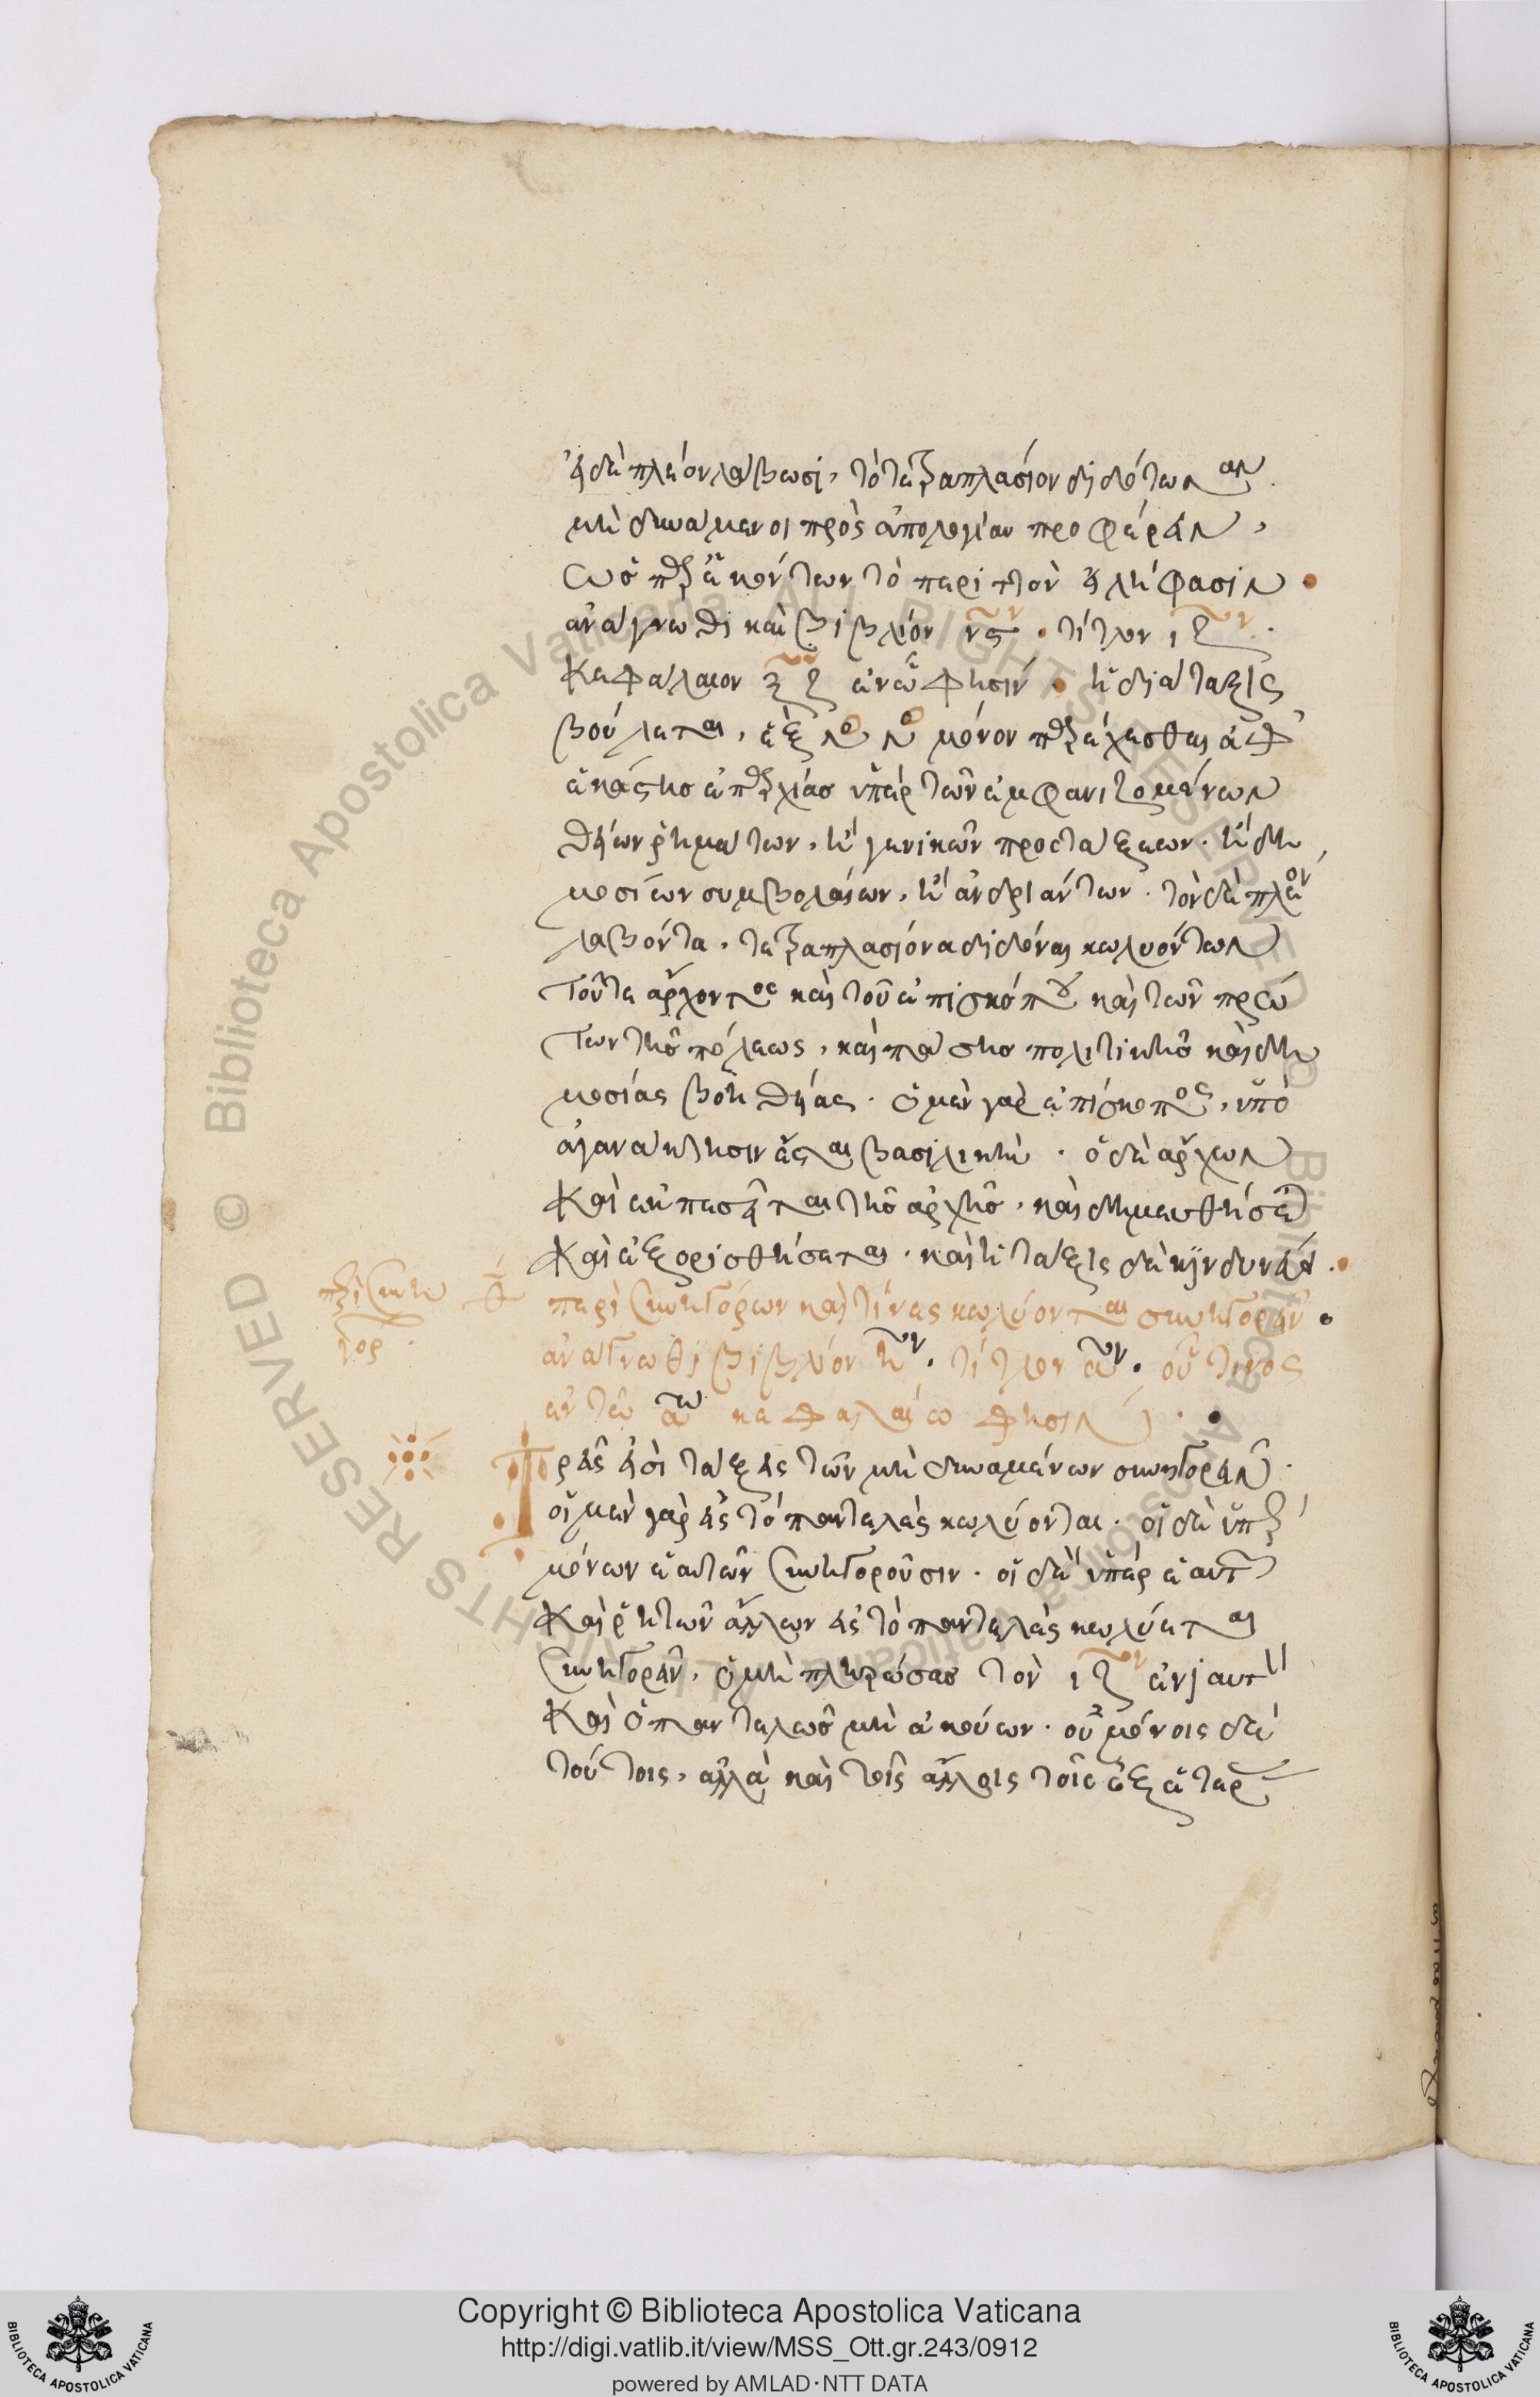 εἰ δὲ πλέον λάβωσι, τὸ τετραπλάσιον διδότωσαν
μὴ δυνάμενοι πρὸς ἀπολογίαν προφέρειν,
ὡς παρ' ἑκόντων τὸ περιττὸν εἰλήφασιν.
ἀνάγνωθι καὶ βιβλίον νϛον. τίτλον ιζον.
κεφάλαιον ξζ ἐν ᾧ φησίν. ἡ διάταξις
βούλεται, ἓξ νο νο μόνον παρέχεσθαι ἀφ'
ἑκάστης ἐπαρχίας ὑπὲρ τῶν ἐμφανιζομένων
θείων ῥημάτων, ἢ γενικῶν προστάξεων. ἢ δη
μοσίων συμβολαίων, ἢ ἀνδριάντων. τὸν δὲ πλέον
λαβόντα, τετραπλασίονα διδόναι κωλυόντων
τοῦ τε ἄρχοντος καὶ τοῦ ἐπισκόπου καὶ τῶν πρώ
των τῆς πόλεως, καὶ πάσης πολιτικῆς καὶ δη
μοσίας βοηθείας. ὁ μὲν γὰρ ἐπίσκοπος, ὑπὸ
ἀγανάκτησιν ἔσται βασιλικήν. ὁ δὲ ἄρχων
καὶ ἐκπεσεῖται τῆς ἀρχῆς, καὶ δημευθήσεται
καὶ ἐξορισθήσεται. καὶ ἡ τάξις δὲ κινδυνεύει.
περὶ συνηγόρων καὶ τίνες κωλύονται συνηγορεῖν.
ἀνάγνωθι βιβλίον ηον. τίτλον αον. οὗτινος
ἐν τῷ αῳ κεφαλαίῳ φησίν.
περὶ συνη
γορ.
Τρεῖς εἰσὶ τάξεις τῶν μὴ δυναμένων συνηγορεῖν.
οἱ μὲν γὰρ εἰς τὸ παντελὲς κωλύονται. οἱ δὲ ὑπὲρ
μόνων ἑαυτῶν συνηγοροῦσιν. οἱ δὲ ὑπὲρ ἑαυτ
καὶ ῥητῶν ἄλλων εἰς τὸ παντελὲς κωλύεται
συνηγορεῖν, ὁ μὴ πληρώσας τὸν ιζον ἐνιαυτ
καὶ ὁ παντελῶς μὴ ἀκούων. οὐ μόνοις δὲ
τούτοις, ἀλλὰ καὶ τοῖς ἄλλοις τοῖς ἐξ ἑτερ
Copyright © Biblioteca Apostolica Vaticana
http://digi.vatlib.it/view/MSS_Ott.gr.243/0912
powered by AMLAD·NTT DATA
BIBLIOTECA APOSTOLICA VATICANA
BIBLIOTECA APOSTOLICA VATICANA